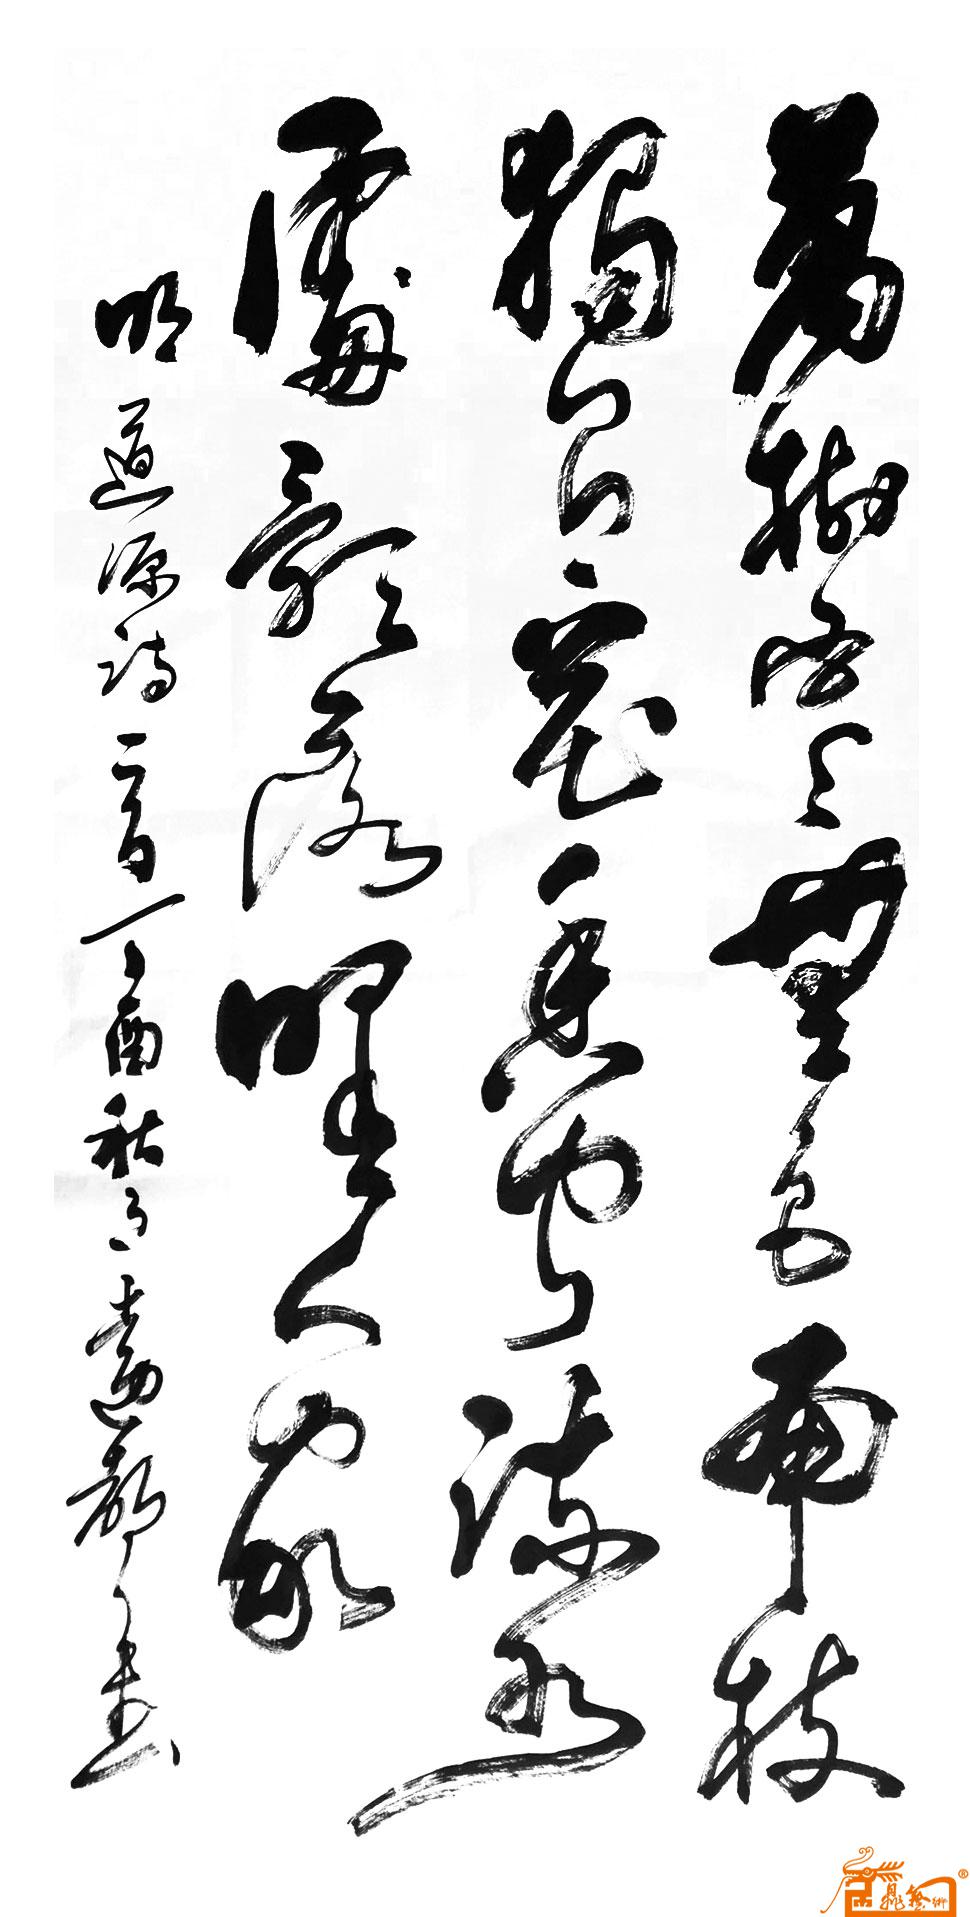 萬樹寒無色南枝
獨有花香聞流水
處影落野人家
明道源詩一首丁酉秋月書